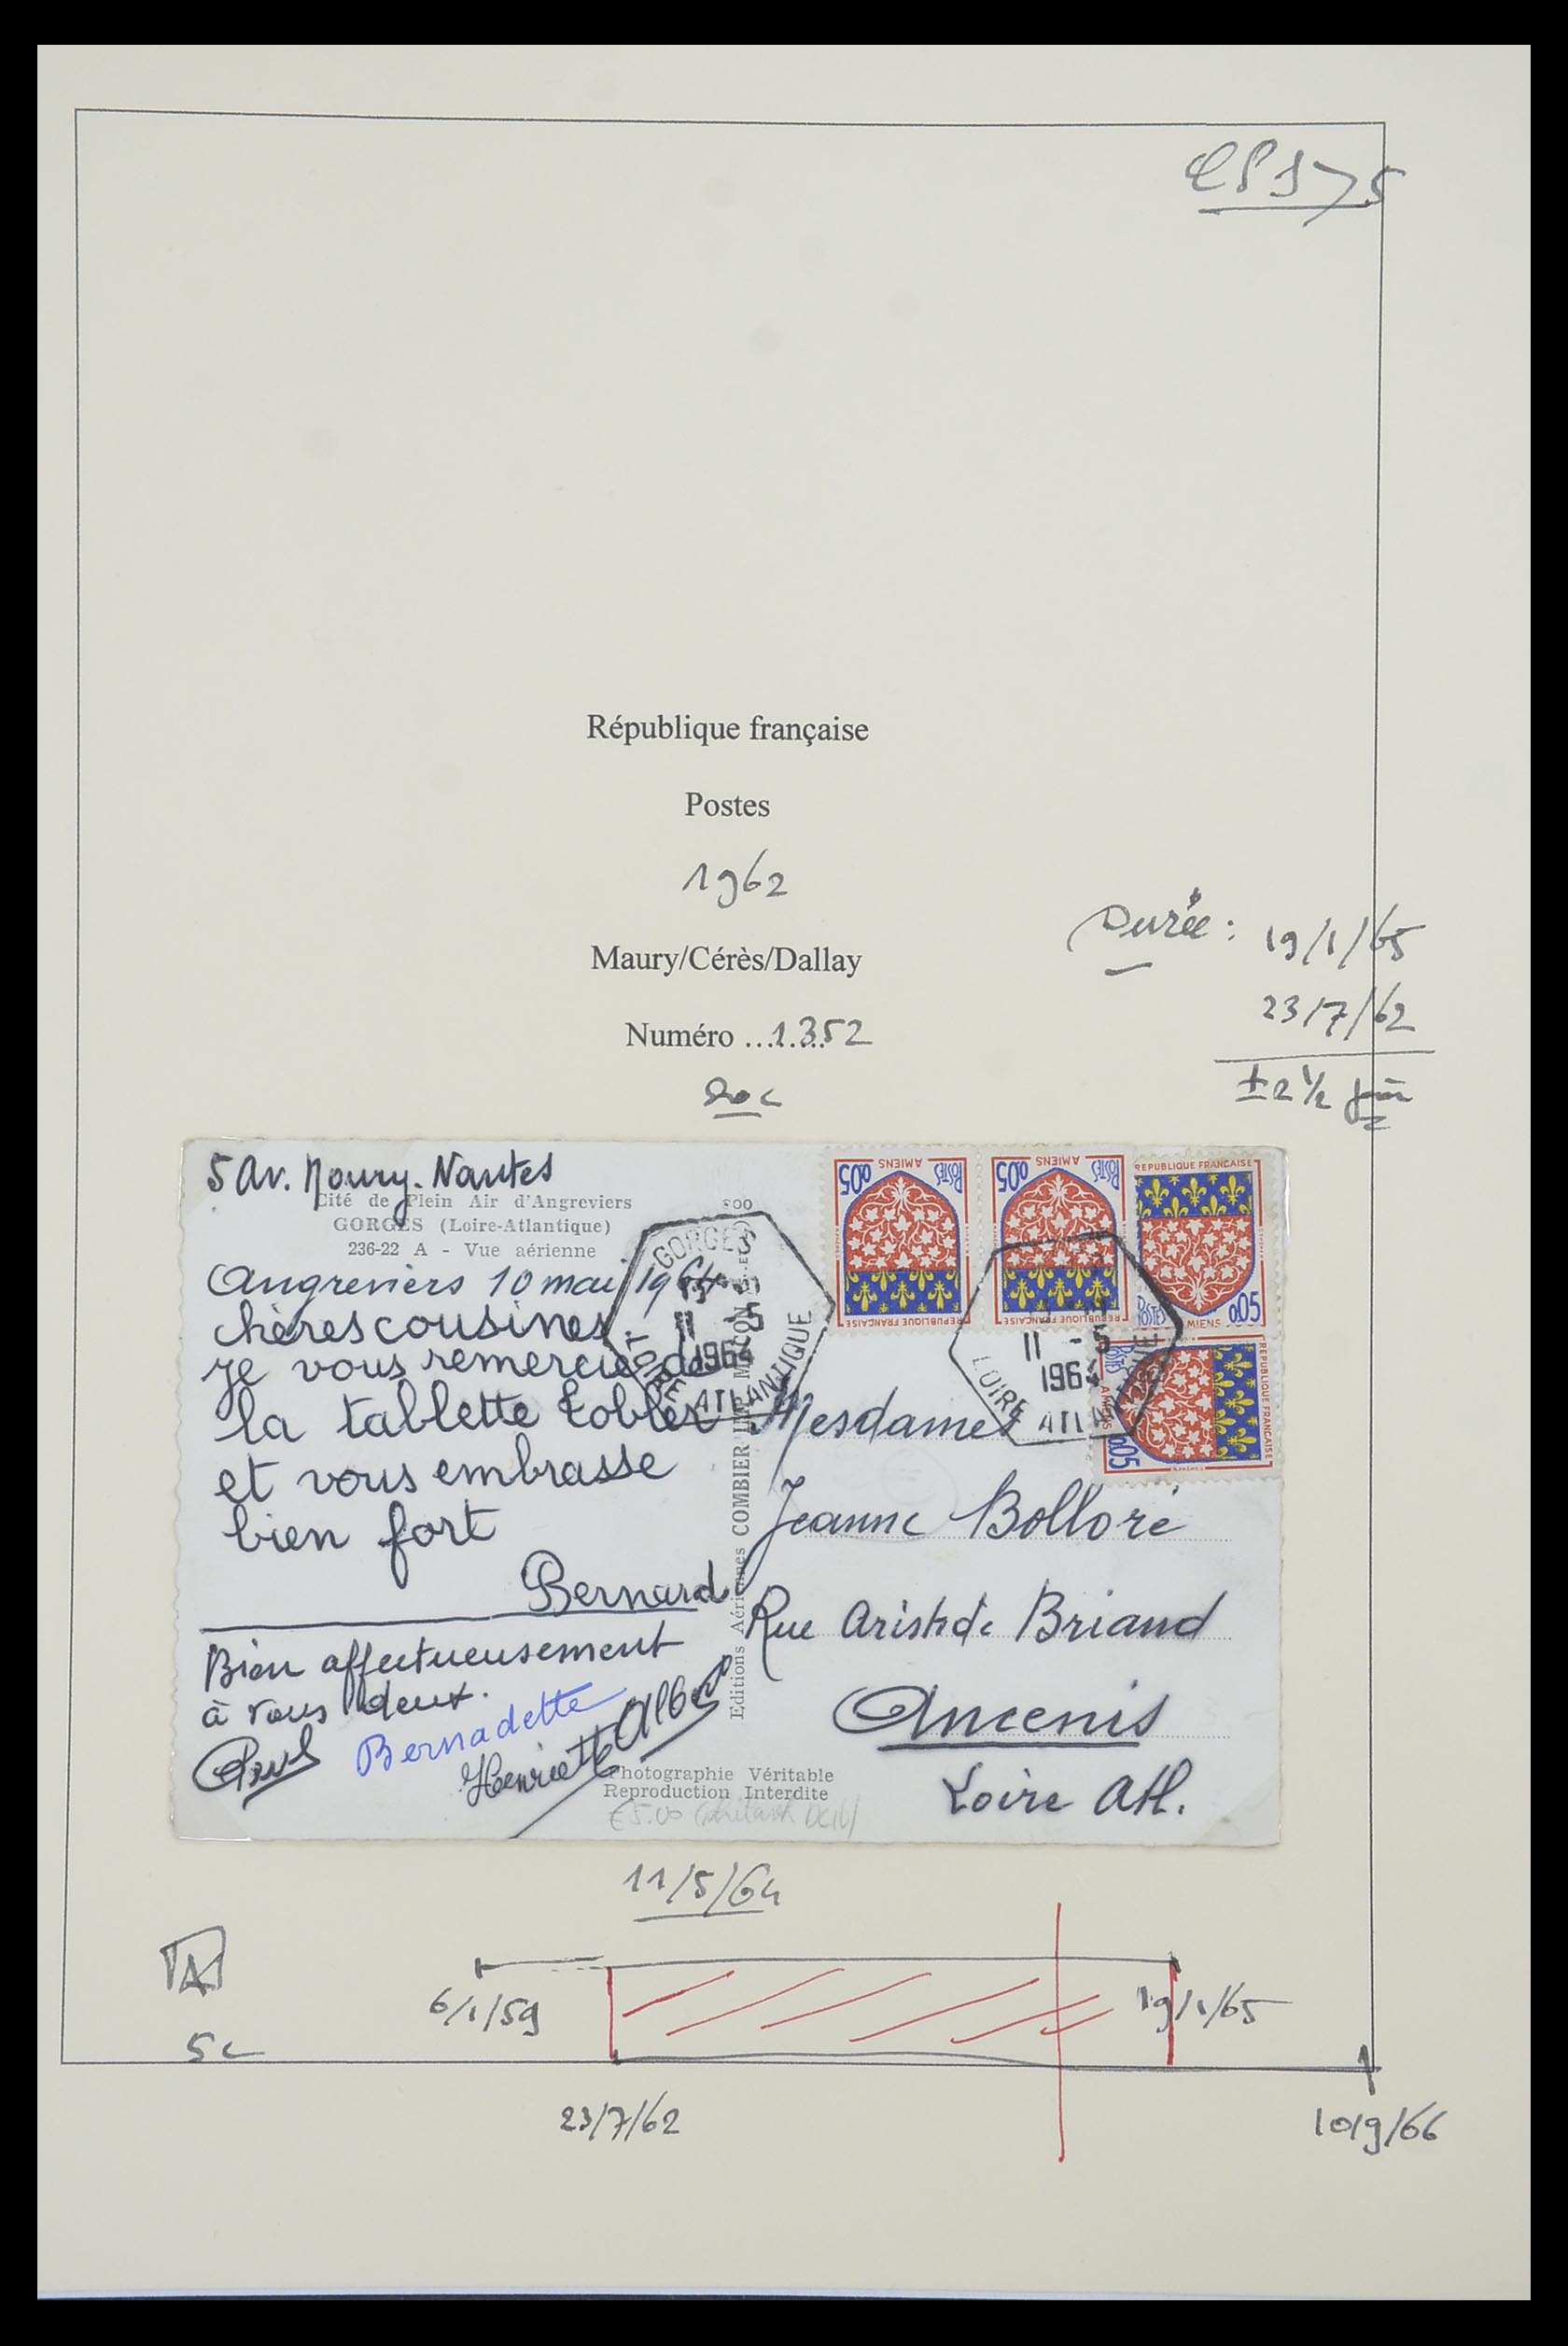 République française
Postes
1962
Maury/Cérès/Dallay
Numéro ....1352
20c
Durée : 19/1/65
23/7/62
±2 1/2
5 Av. Noury. Nantes
Cité de Plein Air d'Angreviers
GORGES (Loire-Atlantique)
236-22 A - Vue aérienne
Angreviers 10 mai 1964
chères cousines
je vous remercie de
la tablette Tobler
et vous embrasse
bien fort
Bernard
Bien affectueusement
à vous deux.
Paul Bernadette
Henriette Albert
Editions Aériennes COMBIER IMP. MACON
Photographie Véritable
Reproduction Interdite
GORGES
11 -5
1964
LOIRE ATLANTIQUE
11 -5
1964
LOIRE ATL
0,05 POSTES
AMIENS
REPUBLIQUE FRANÇAISE
0,05 POSTES
AMIENS
REPUBLIQUE FRANÇAISE
REPUBLIQUE FRANÇAISE
POSTES 0,05
AMIENS
REPUBLIQUE FRANÇAISE
POSTES 0,05
AMIENS
Mesdames
Jeanne Bolloré
Rue Aristide Briand
Ancenis
Loire Atl.
11/5/64
A
5c
6/1/59
19/1/65
23/7/62
10/9/66